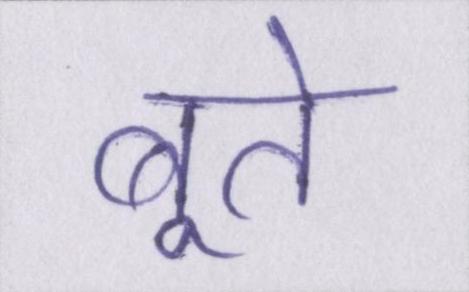 बूते